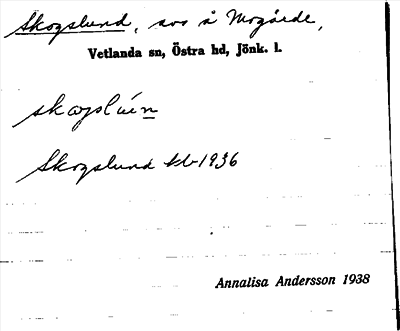 Skogslund, sos å Mogärde,
Vetlanda sn, Östra hd, Jönk. l.
skogslún
Skogslund kb 1936
Annalisa Andersson 1938